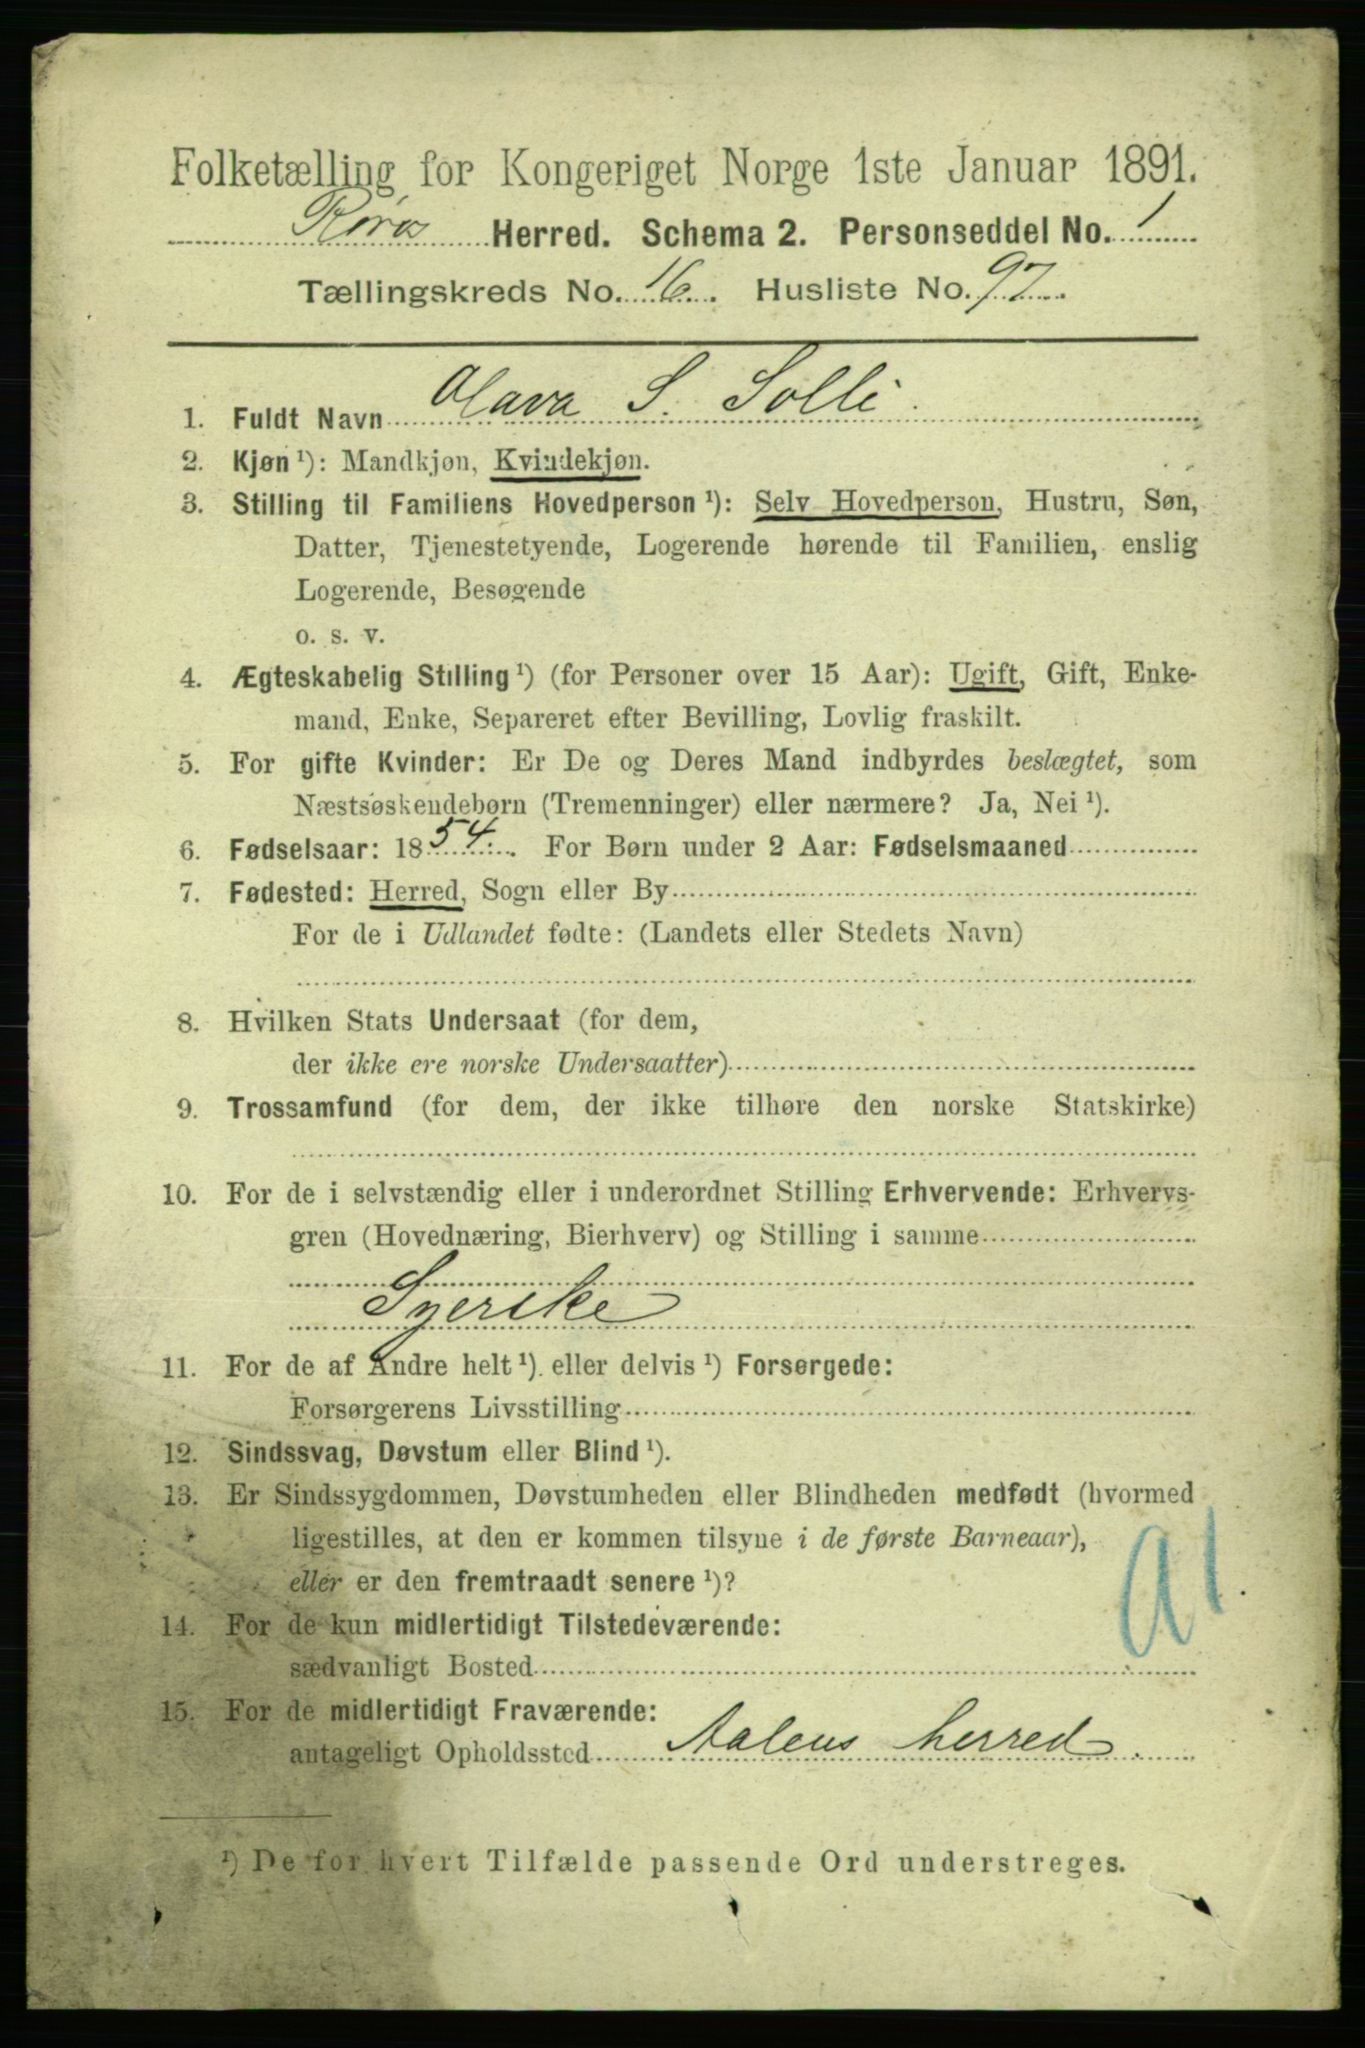 Folketælling for Kongeriget Norge 1ste Januar 1891.
Røros Herred. Schema 2. Personseddel No. 1
Tællingskreds No. 16. Husliste No. 97
1. Fuldt Navn Olava S. Solli
2. Kjøn ¹): Mandkjøn, Kvindekjøn.
3. Stilling til Familiens Hovedperson ¹): Selv Hovedperson, Hustru, Søn,
Datter, Tjenestetyende, Logerende hørende til Familien, enslig
Logerende, Besøgende
o. s. v.
4. Ægteskabelig Stilling ¹) (for Personer over 15 Aar): Ugift, Gift, Enke-
mand, Enke, Separeret efter Bevilling, Lovlig fraskilt.
5. For gifte Kvinder: Er De og Deres Mand indbyrdes beslægtet, som
Næstsøskendebørn (Tremenninger) eller nærmere? Ja, Nei ¹).
6. Fødselsaar: 1854. For Børn under 2 Aar: Fødselsmaaned
7. Fødested: Herred, Sogn eller By
For de i Udlandet fødte: (Landets eller Stedets Navn)
8. Hvilken Stats Undersaat (for dem,
der ikke ere norske Undersaatter)
9. Trossamfund (for dem, der ikke tilhøre den norske Statskirke)
10. For de i selvstændig eller i underordnet Stilling Erhvervende: Erhvervs-
gren (Hovednæring, Bierhverv) og Stilling i samme
Syerske
11. For de af Andre helt ¹) eller delvis ¹) Forsørgede:
Forsørgerens Livsstilling
12. Sindssvag, Døvstum eller Blind ¹).
13. Er Sindssygdommen, Døvstumheden eller Blindheden medfødt (hvormed
ligestilles, at den er kommen tilsyne i de første Barneaar),
eller er den fremtraadt senere ¹)?
14. For de kun midlertidigt Tilstedeværende:
sædvanligt Bosted
15. For de midlertidigt Fraværende:
antageligt Opholdssted Aalens herred.
¹) De for hvert Tilfælde passende Ord understreges.